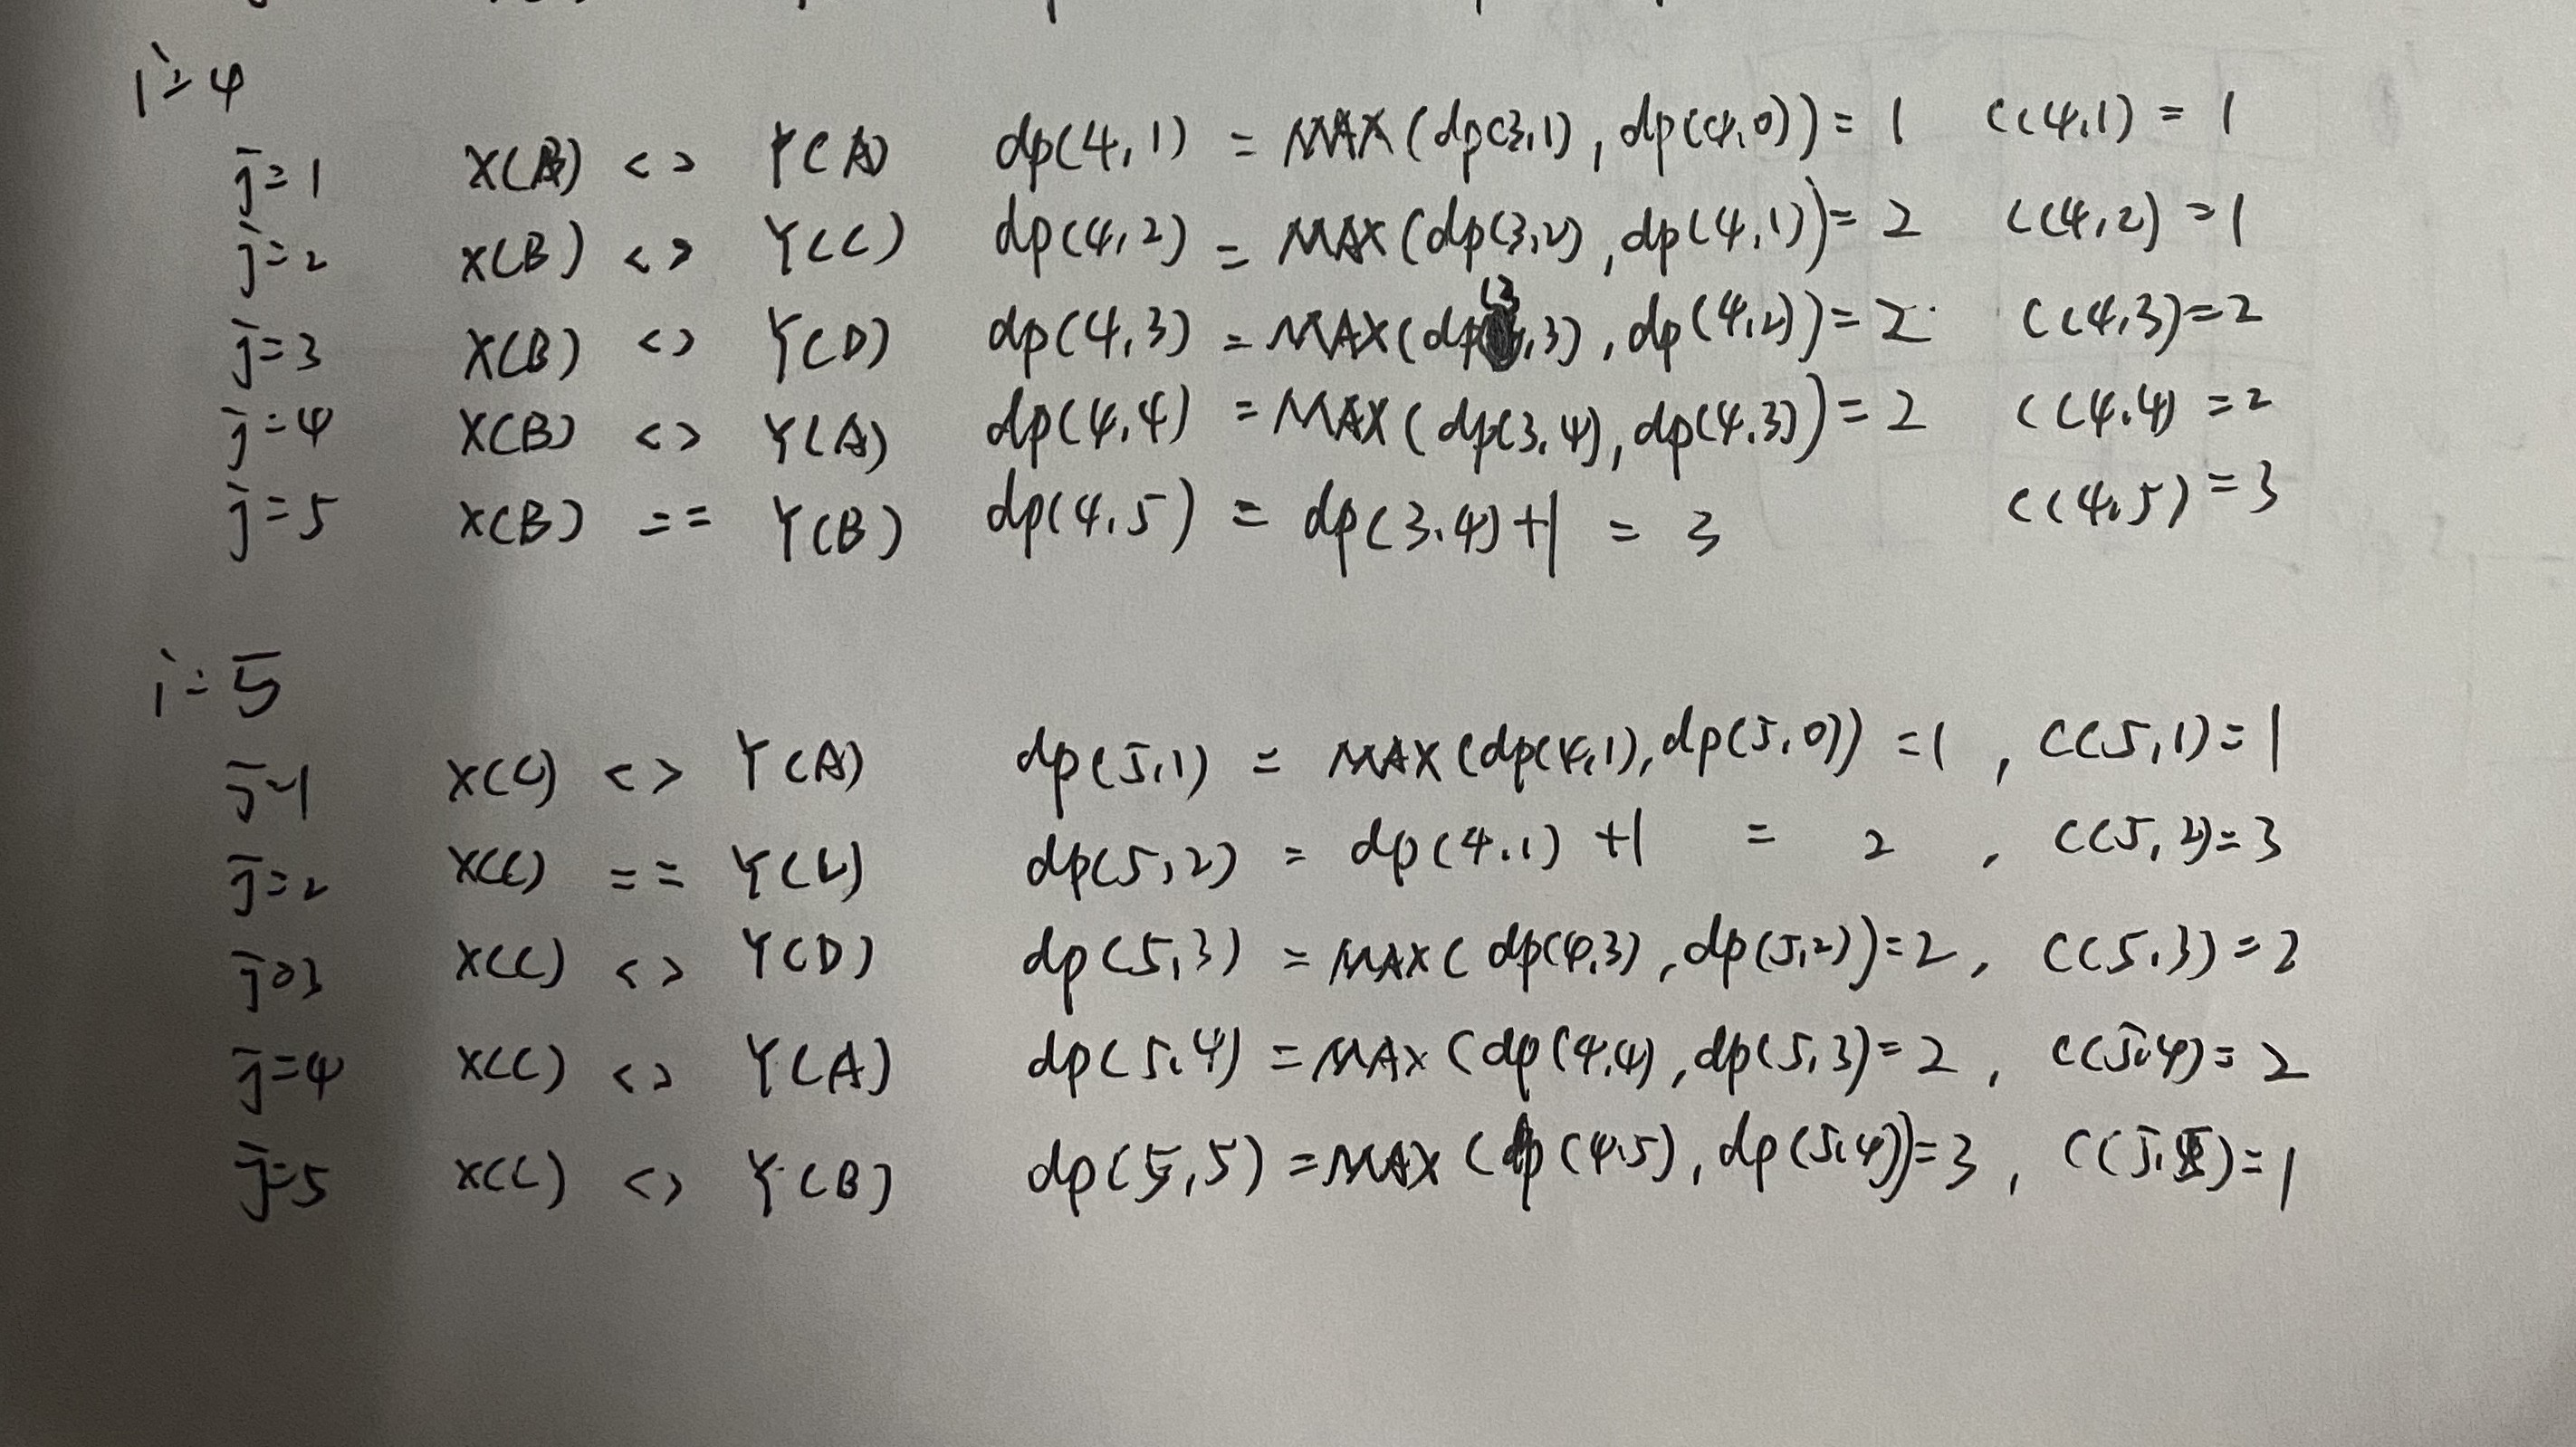 i=4
j=1 X(B) <> Y(A) dp(4,1) = MAX(dp(3,1), dp(4,0)) = 1 C(4,1) = 1
j=2 X(B) <> Y(C) dp(4,2) = MAX(dp(3,2), dp(4,1)) = 2 C(4,2) = 1
j=3 X(B) <> Y(D) dp(4,3) = MAX(dp(3,3), dp(4,2)) = 2 C(4,3) = 2
j=4 X(B) <> Y(A) dp(4,4) = MAX(dp(3,4), dp(4,3)) = 2 C(4,4) = 2
j=5 X(B) == Y(B) dp(4,5) = dp(3,4)+1 = 3 C(4,5) = 3
i=5
j=1 X(C) <> Y(A) dp(5,1) = MAX(dp(4,1), dp(5,0)) = 1 , C(5,1) = 1
j=2 X(C) == Y(C) dp(5,2) = dp(4,1) +1 = 2 , C(5,2) = 3
j=3 X(C) <> Y(D) dp(5,3) = MAX(dp(4,3), dp(5,2)) = 2 , C(5,3) = 2
j=4 X(C) <> Y(A) dp(5,4) = MAX(dp(4,4), dp(5,3) = 2 , C(5,4) = 2
j=5 X(C) <> Y(B) dp(5,5) = MAX(dp(4,5), dp(5,4)) = 3 , C(5,5) = 1